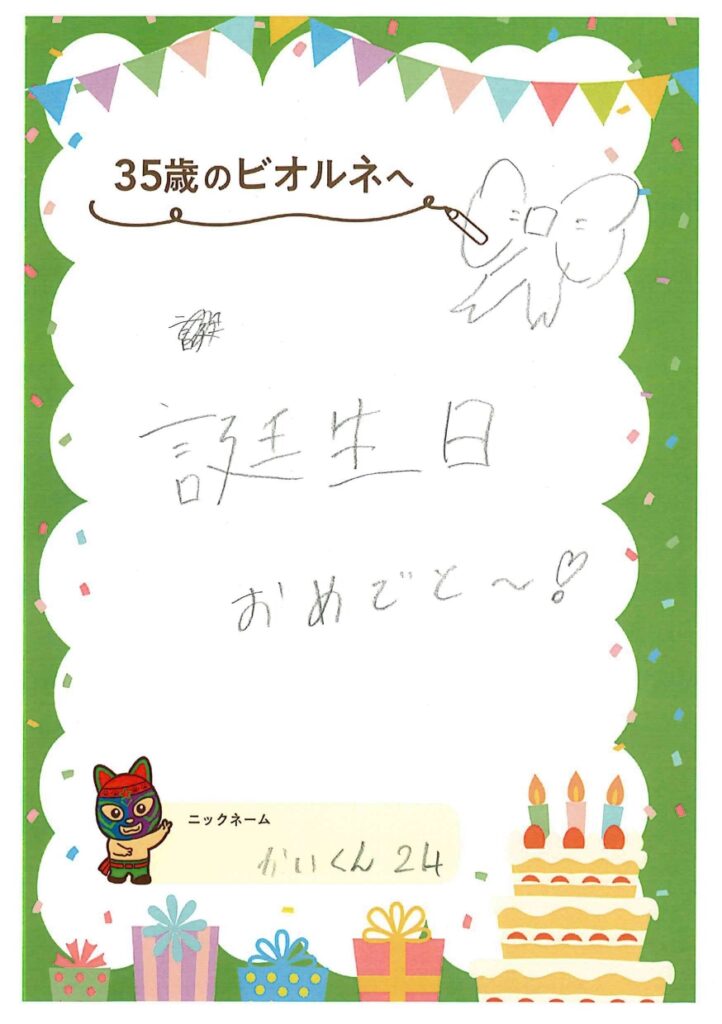 35歳のビオルネへ
誕生日
おめでと～!
ニックネーム
かいくん24